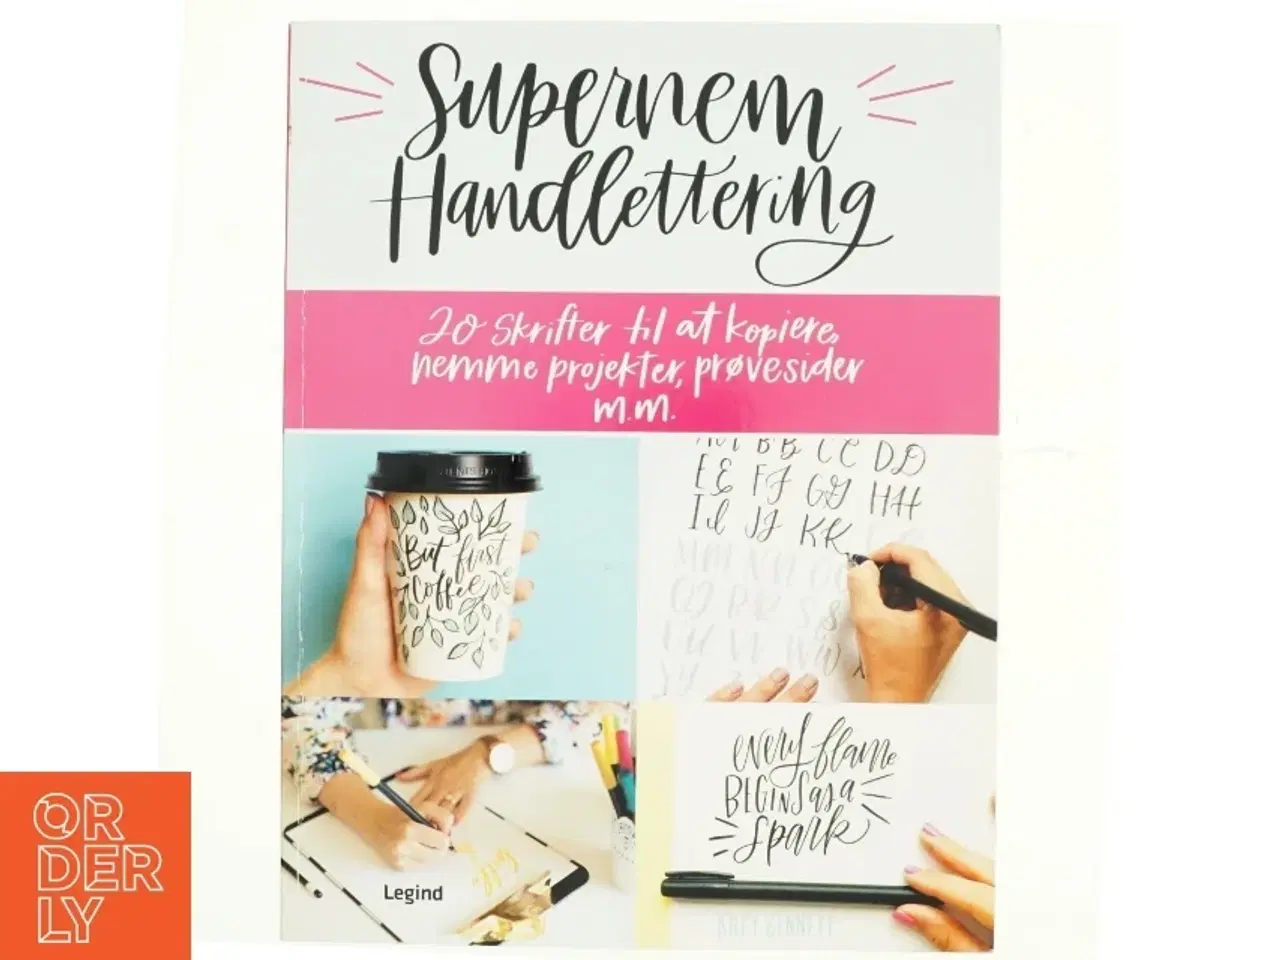 Supernem
Handlettering
20 skrifter til at kopiere,
nemme projekter, prøvesider
m.m.
But first
coffee
BB CC DD
EE FF GG HH
II JJ KK
every flame
BEGINS as a
spark
Legind
OR
DER
LY